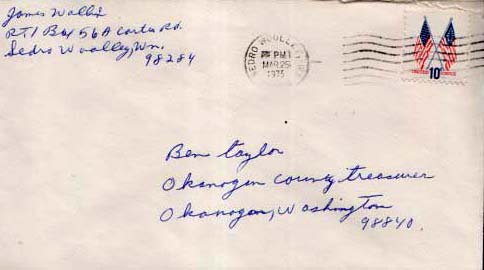 James Wallis
RT. 1 Box 56A Carter Rd.
Sedro Woolley, Wn.
98284
SEDRO WOOLLEY, WA
PM
MAR 25
1975
10¢
Ben Taylor
Okanogen County treasurer
Okanogan, Washington
98840.